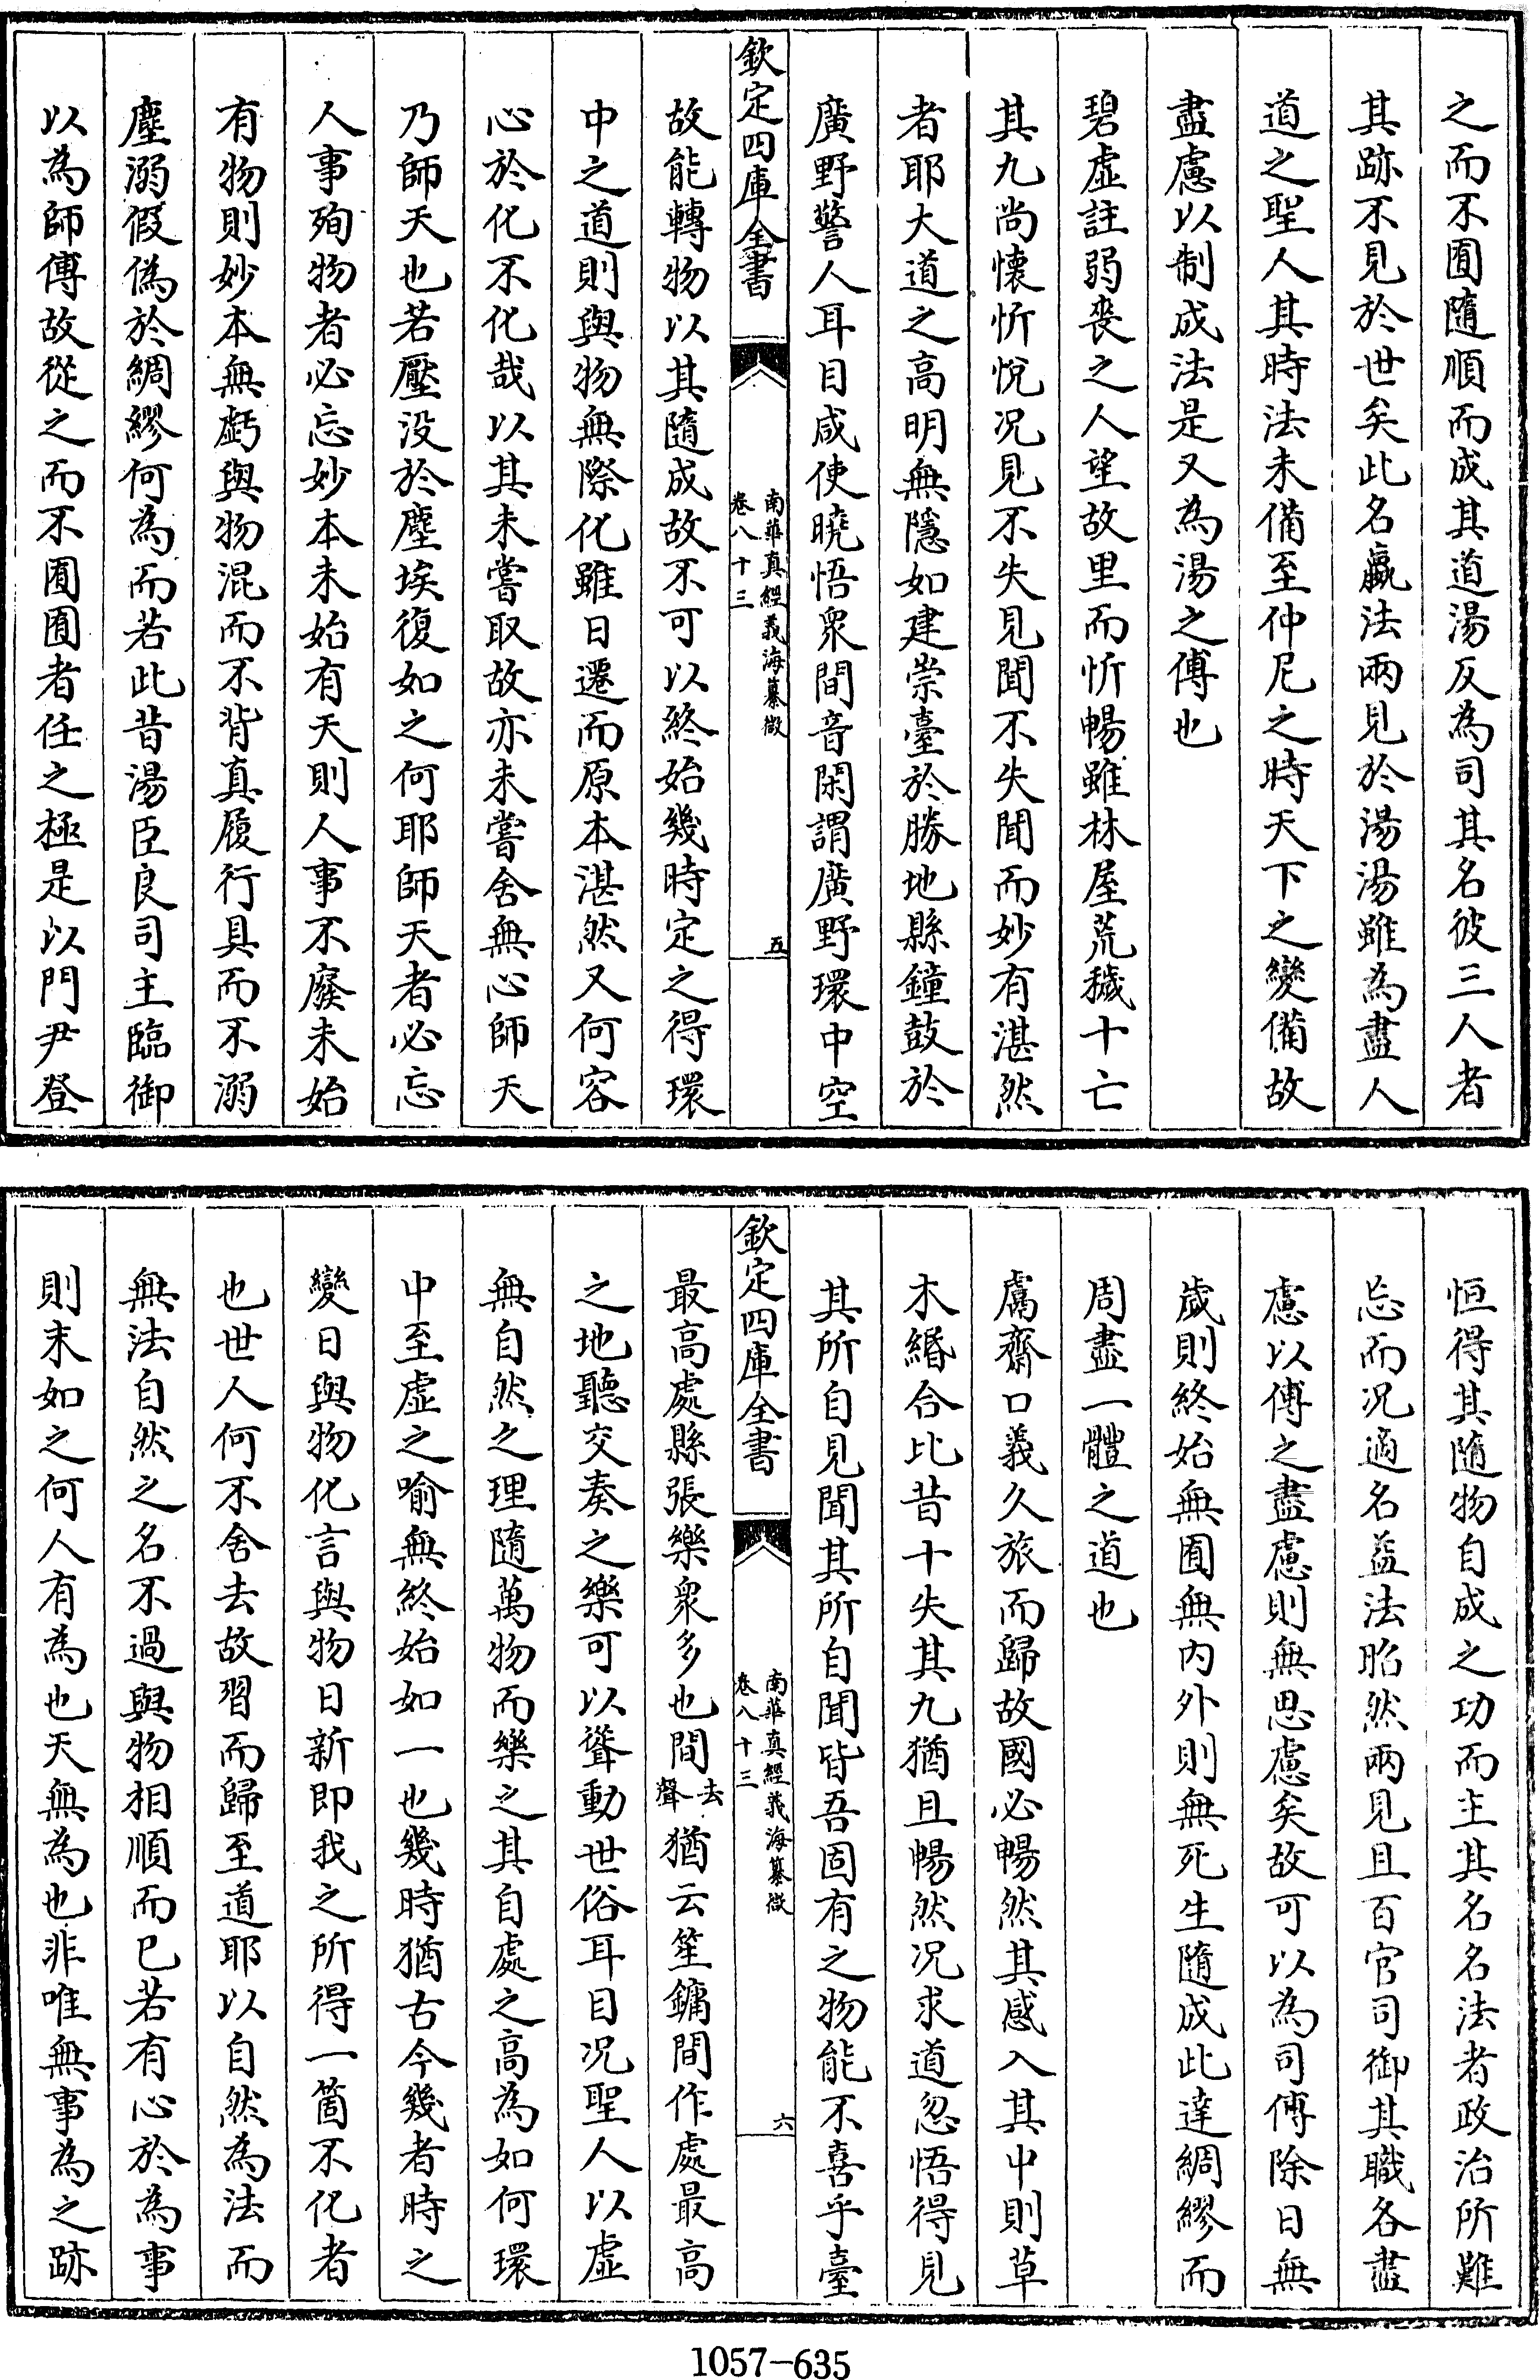 之而不囿隨順而成其道湯反為司其名彼三人者
其跡不見於世矣此名嬴法兩見於湯湯雖為盡人
道之聖人其時法未備至仲尼之時天下之變備故
盡慮以制成法是又為湯之傅也
碧虛註弱喪之人望故里而忻暢雖林屋荒穢十亡
其九尚懷忻悅况見不失見聞不失聞而妙有湛然
者耶大道之高明無隱如建崇臺於勝地縣鐘鼓於
廣野警人耳目咸使曉悟衆間音閑謂廣野環中空
欽定四庫全書
南華真經義海纂微
卷八十三
五
故能轉物以其隨成故不可以終始幾時定之得環
中之道則與物無際化雖日遷而原本湛然又何容
心於化不化哉以其未嘗取故亦未嘗舍無心師天
乃師天也若壓没於塵埃復如之何耶師天者必忘
人事殉物者必忘妙本未始有天則人事不廢未始
有物則妙本無虧與物混而不背真履行具而不溺
塵溺假偽於綢繆何為而若此昔湯臣良司主臨御
以為師傅故從之而不囿囿者任之極是以門尹登
恒得其隨物自成之功而主其名名法者政治所難
忘而况適名益法昭然兩見且百官司御其職各盡
慮以傅之盡慮則無思慮矣故可以為司傅除日無
歲則終始無囿無内外則無死生隨成此達綢繆而
周盡一體之道也
鬳齋口義久旅而歸故國必暢然其感入其中則草
木緡合比昔十失其九猶且暢然况求道忽悟得見
其所自見聞其所自聞皆吾固有之物能不喜乎臺
欽定四庫全書
南華真經義海纂微
卷八十三
六
最高處縣張樂衆多也間去聲猶云笙鏞間作處最高
之地聽交奏之樂可以聳動世俗耳目况聖人以虛
無自然之理隨萬物而樂之其自處之高為如何環
中至虛之喻無終始如一也幾時猶古今幾者時之
變日與物化言與物日新即我之所得一箇不化者
也世人何不舍去故習而歸至道耶以自然為法而
無法自然之名不過與物相順而已若有心於為事
則末如之何人有為也天無為也非唯無事為之跡
1057-635